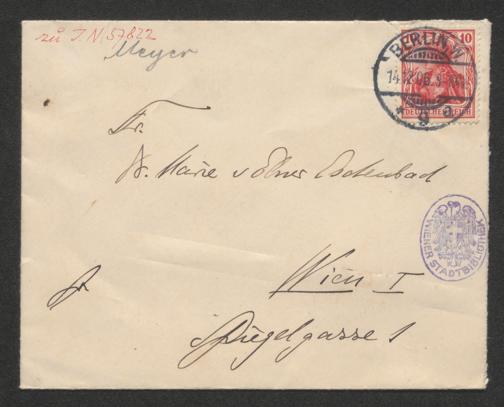 zu I.N. 57822
Meyer
10
BERLIN.W.
DEUTSCHES REICH
Fr.
Dr. Marie v Ebner Eschenbach
WIENER STADTBIBLIOTHEK
Wien I
fr.
Spiegelgasse 1